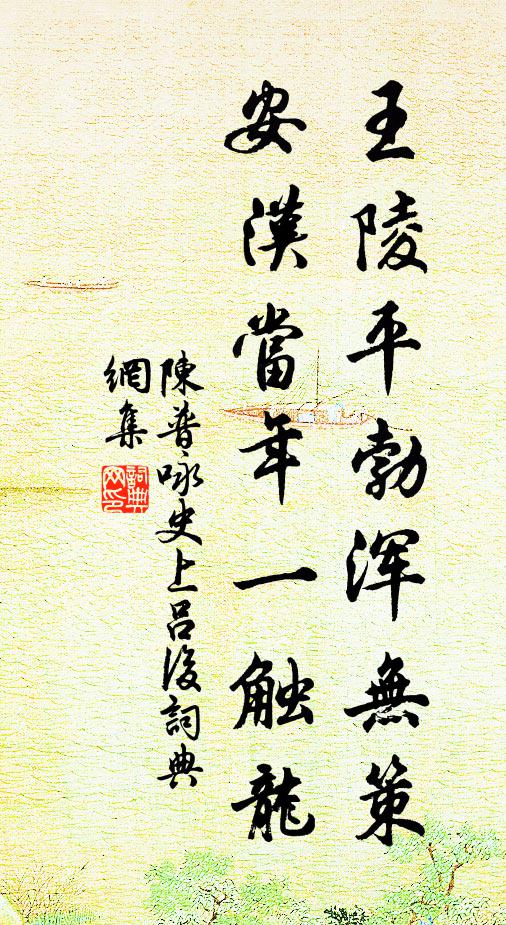 王陵平勃浑無策
安漢當年一触龍
陳普咏史上吕後詞典
網集
詞典
网印